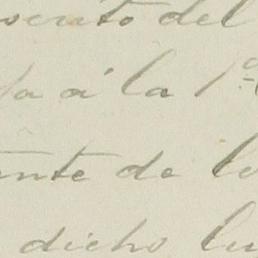 scrito del
a á la 1ª
ente de l
dicho lu